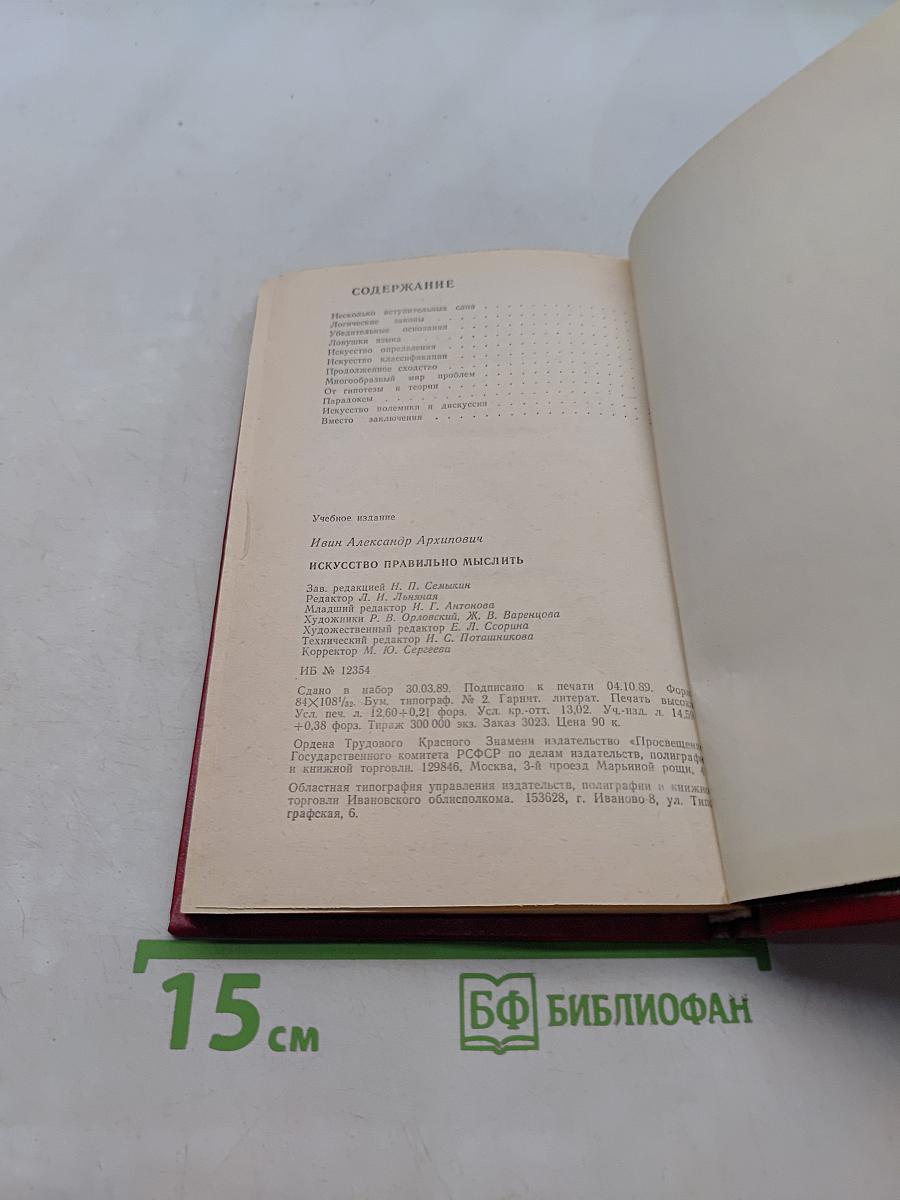 СОДЕРЖАНИЕ
Несколько вступительных слов
Логические законы
Убедительные основания
Ловушки языка
Искусство определения
Искусство классификации
Продолженное сходство
Многообразный мир проблем
От гипотезы к теории
Парадоксы
Искусство полемики и дискуссии
Вместо заключения
Учебное издание
Ивин Александр Архипович
ИСКУССТВО ПРАВИЛЬНО МЫСЛИТЬ
Зав. редакцией Н. П. Семыкин
Редактор Л. И. Льняная
Младший редактор И. Г. Антонова
Художники Р. В. Орловский, Ж. В. Варенцова
Художественный редактор Е. Л. Ссорина
Технический редактор И. С. Поташникова
Корректор М. Ю. Сергеева
ИБ № 12354
Сдано в набор 30.03.89. Подписано к печати 04.10.89. Форм
84×108¹/₃₂. Бум. типограф. № 2. Гарнит. литерат. Печать высока
Усл. печ. л. 12,60+0,21 форз. Усл. кр.-отт. 13,02. Уч.-изд. л. 14,59
+0,38 форз. Тираж 300 000 экз. Заказ 3023. Цена 90 к.
Ордена Трудового Красного Знамени издательство «Просвещение
Государственного комитета РСФСР по делам издательств, полиграфи
и книжной торговли. 129846, Москва, 3-й проезд Марьиной рощи, 4
Областная типография управления издательств, полиграфии и книжно
торговли Ивановского облисполкома. 153628, г. Иваново-8, ул. Типо
графская, 6.
15 см
БФ БИБЛИОФАН